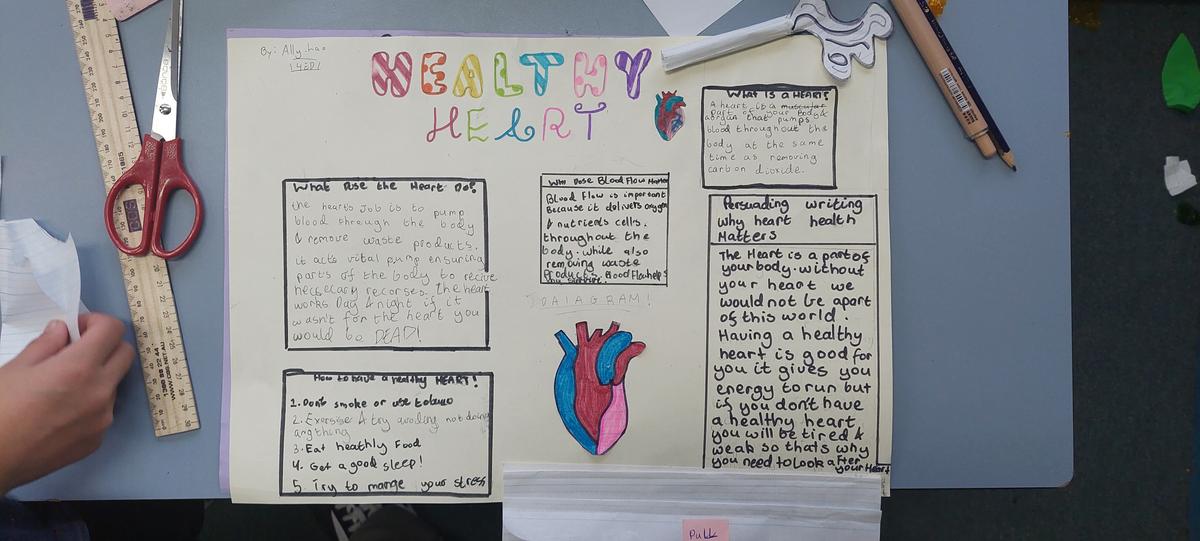 By: Ally
HEALTHY
HEART
What Dose the Heart Do?
the hearts Job is to pump
blood through the body
& remove waste products.
it acts vital pump ensuring
parts of the body to recive
neccecary recorses. The heart
works Day & night if it
wasn't for the heart you
would be DEAD!
How to have a healthy HEART!
1. Don't smoke or use tobaco
2. Exersise & try avoding not doing
angthing
3. Eat heathly Food
4. Get a good sleep!
5. Try to mange your stress
Why Dose Blood Flow Matter
Blood Flow is important
Because it delivers oxygen
& nutrients cells.
throughout the
body. while also
removing waste
Products. Blood Flow helps
you survive.
DAIAGRAM!
What is a HEART?
A heart is a muscular
part of your body &
aorgan that pumps
blood throughout the
body at the same
time as removing
carbon dioxide.
Persuading writing
why heart health
Matters
The Heart is a part of
your body. without
your heart we
would not be apart
of this world.
Having a healthy
heart is good for
you it gives you
energy to run but
if you don't have
a healthy heart
you will be tired &
weak so thats why
you need to look after
your Heart
Pull